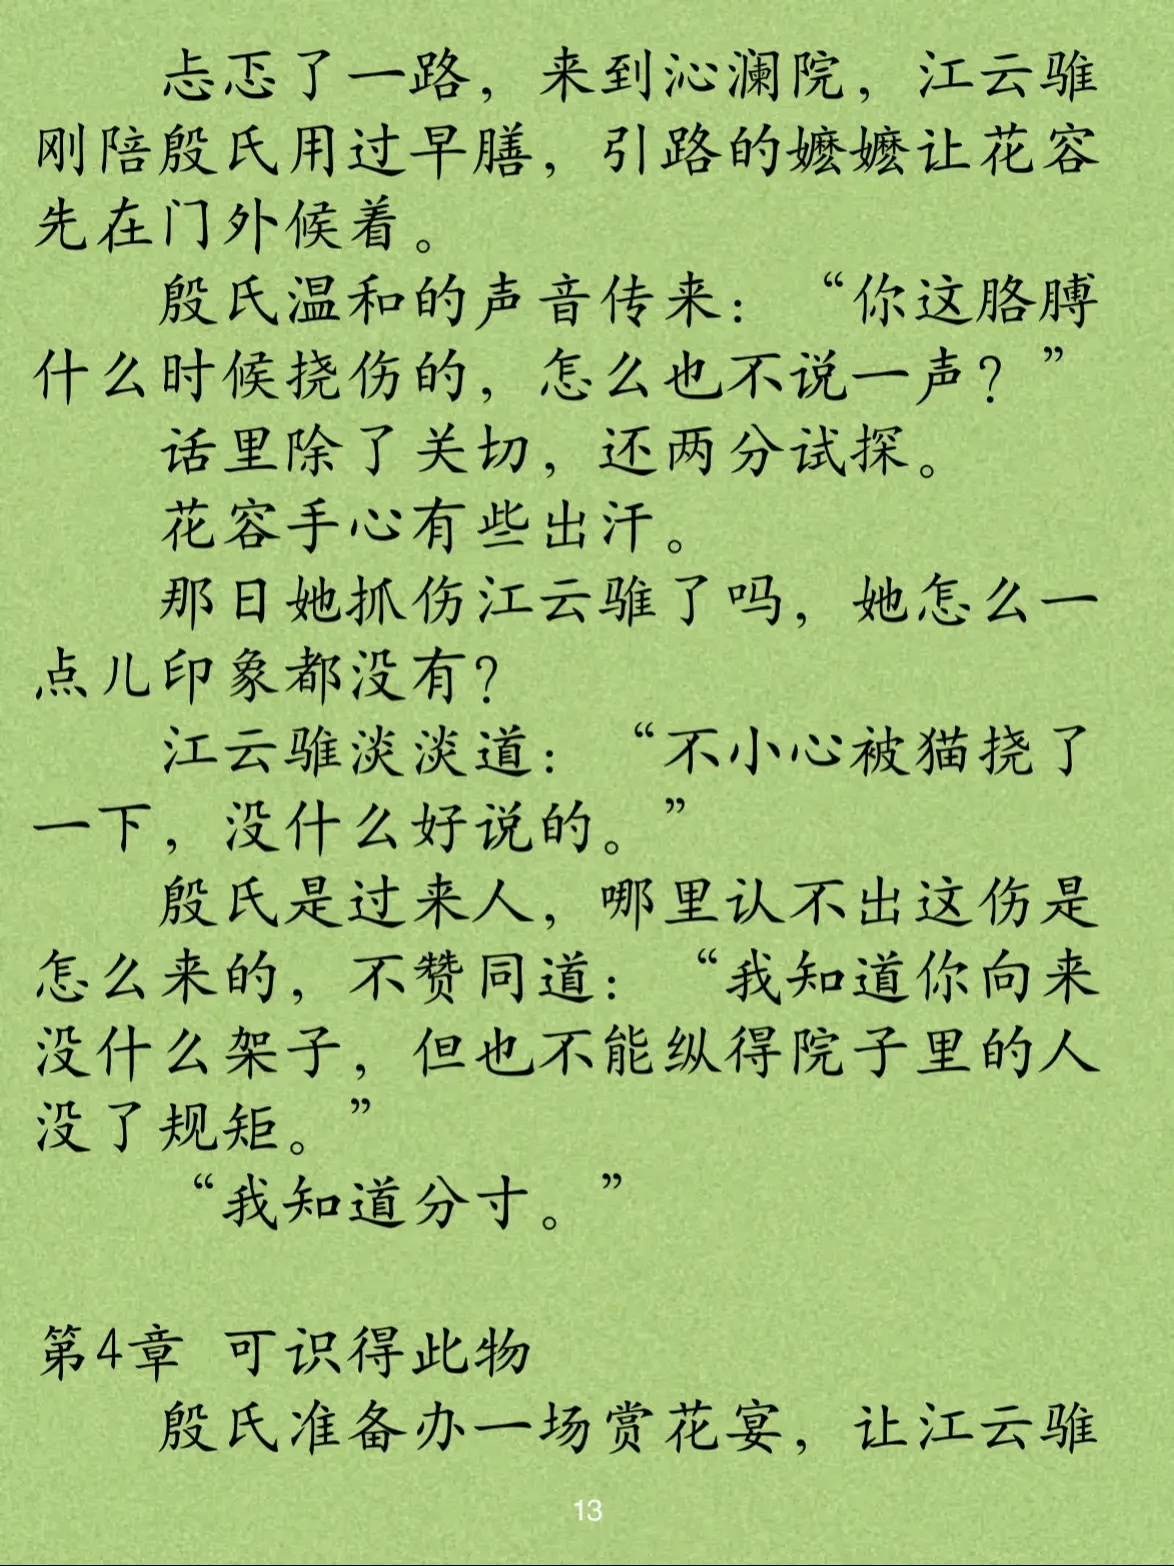 忐忑了一路，来到沁澜院，江云骓
刚陪殷氏用过早膳，引路的嬷嬷让花容
先在门外候着。
殷氏温和的声音传来：“你这胳膊
什么时候挠伤的，怎么也不说一声？”
话里除了关切，还两分试探。
花容手心有些出汗。
那日她抓伤江云骓了吗，她怎么一
点儿印象都没有？
江云骓淡淡道：“不小心被猫挠了
一下，没什么好说的。”
殷氏是过来人，哪里认不出这伤是
怎么来的，不赞同道：“我知道你向来
没什么架子，但也不能纵得院子里的人
没了规矩。”
“我知道分寸。”
第4章 可识得此物
殷氏准备办一场赏花宴，让江云骓
13